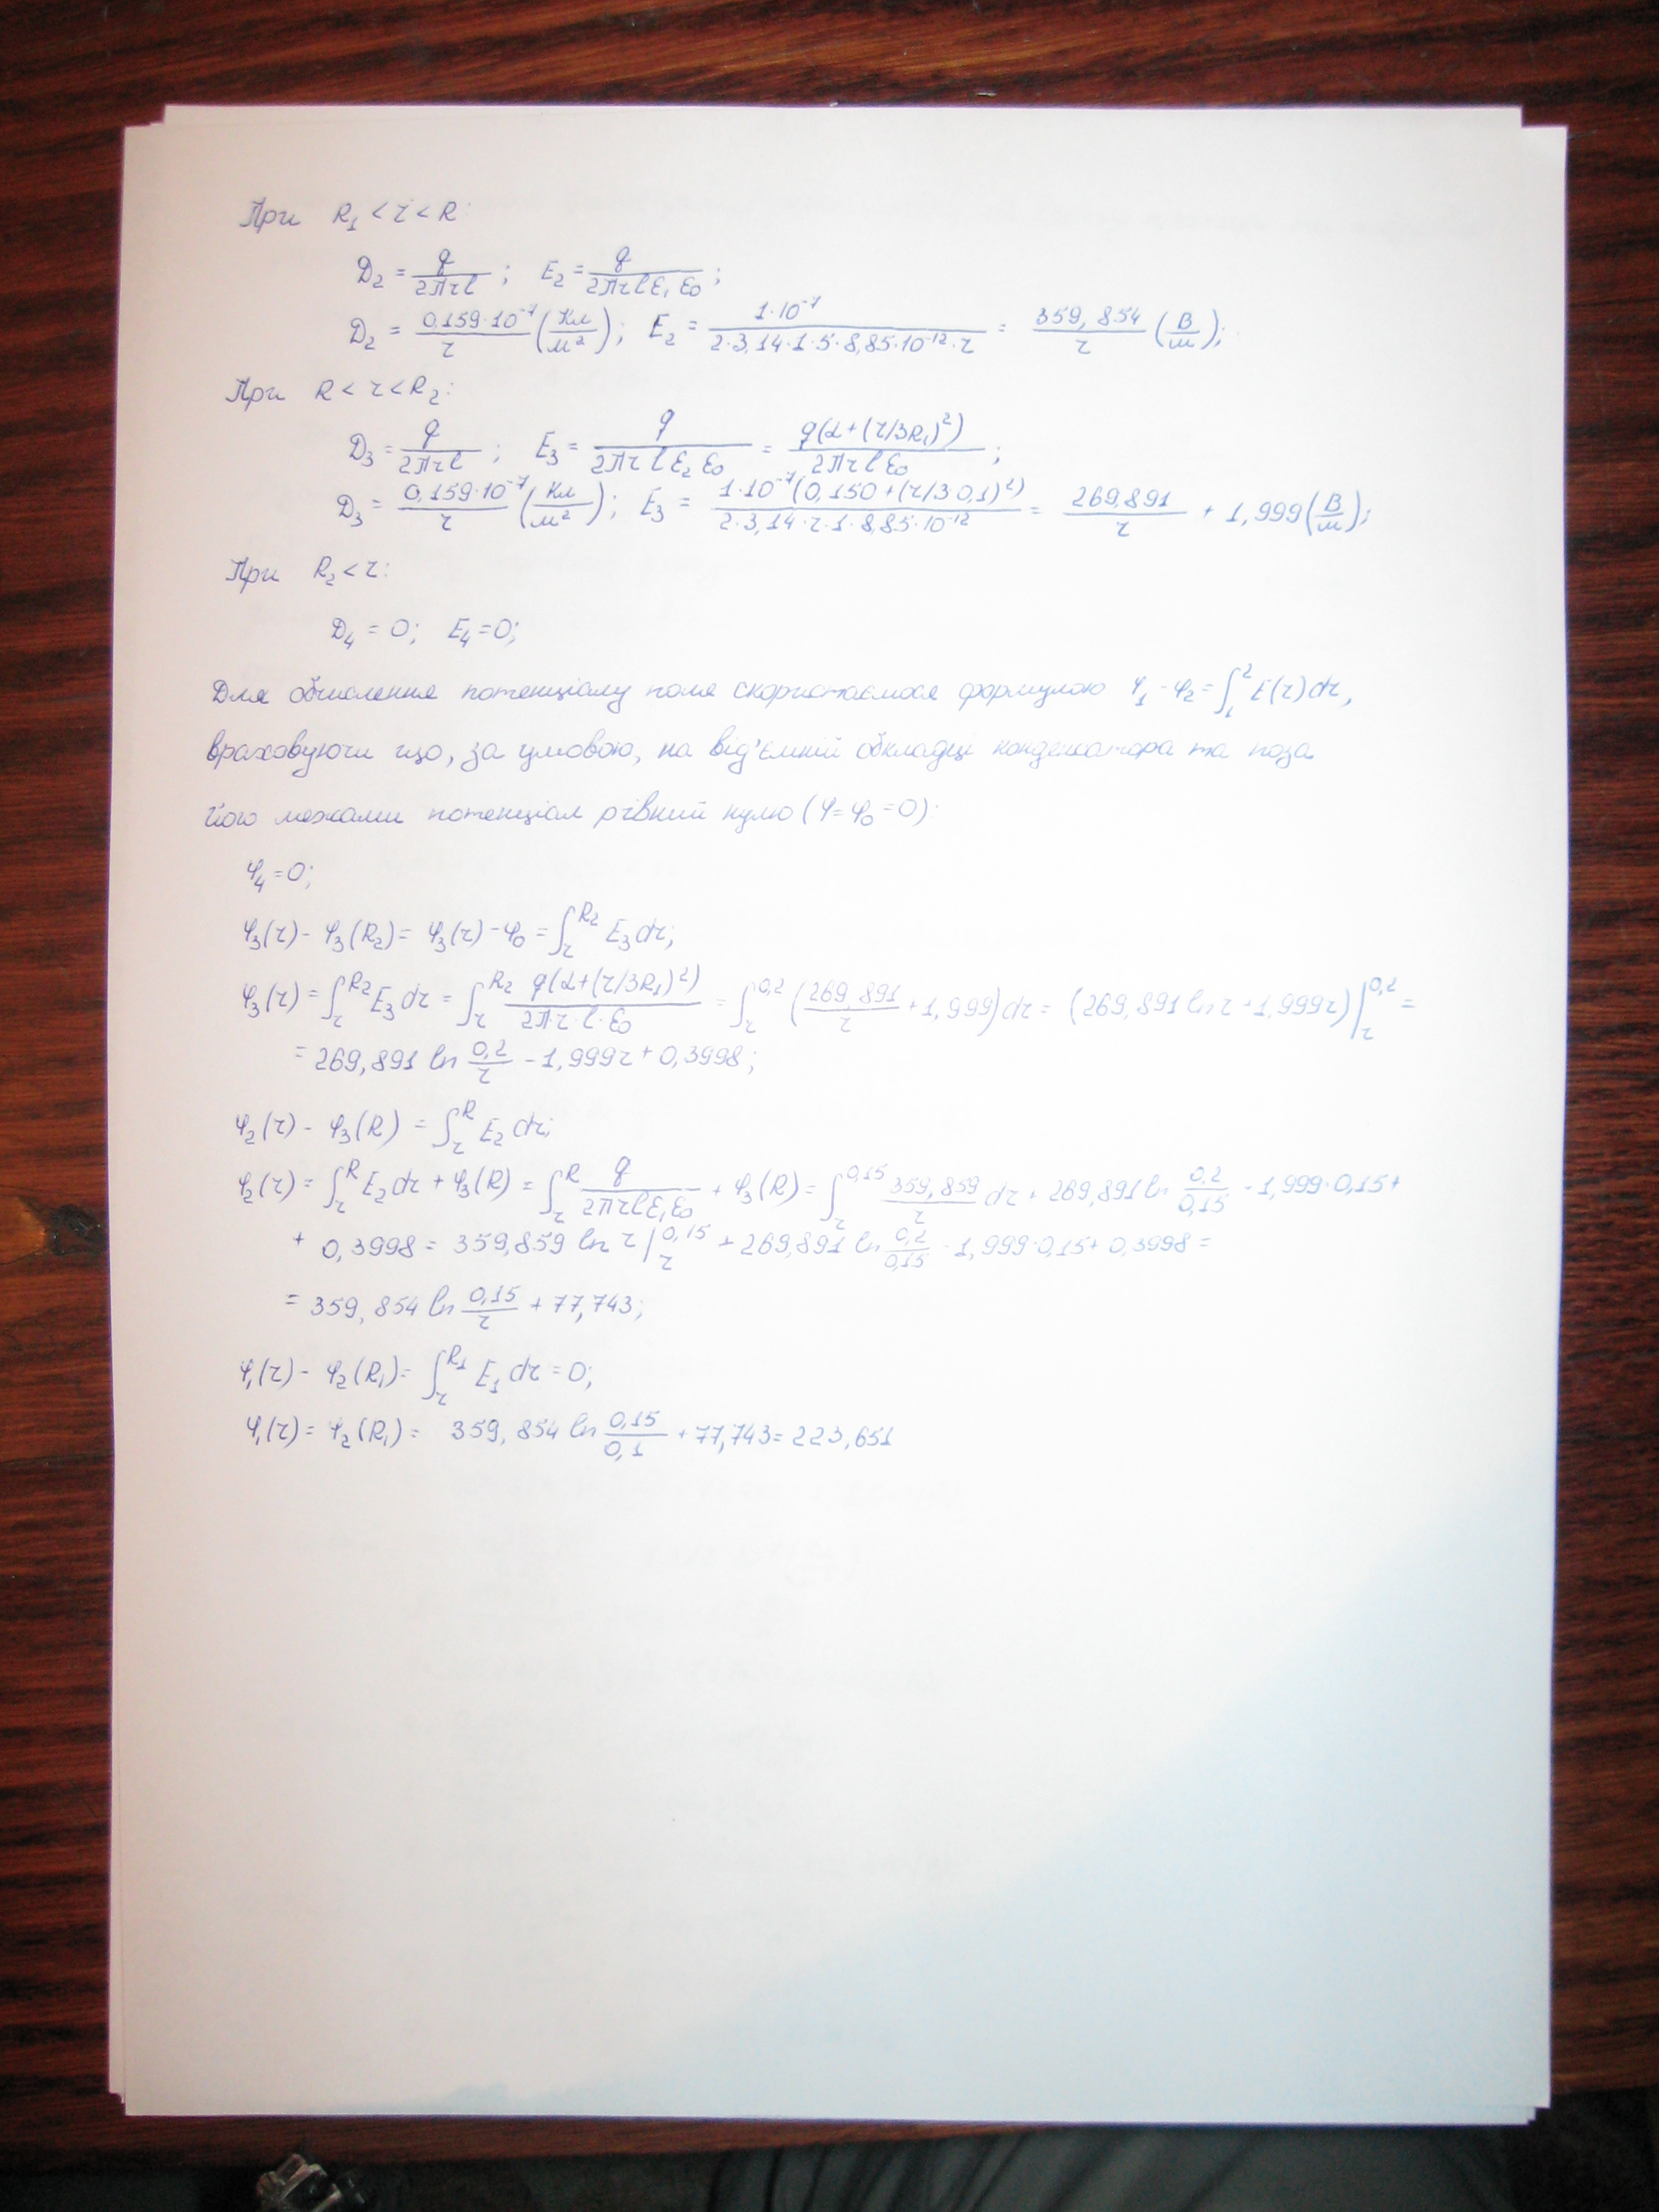 При R₁ < r < R:
D₂ = q/(2πrl); E₂ = q/(2πrlε₁ε₀);
D₂ = 0,159·10⁻⁷/r (Кл/м²); E₂ = 1·10⁻⁷/(2·3,14·1·5·8,85·10⁻¹²·r) = 359,854/r (В/м);
При R < r < R₂:
D₃ = q/(2πrl); E₃ = q/(2πrlε₂ε₀) = q(α+(r/3R₁)²)/(2πrlε₀);
D₃ = 0,159·10⁻⁷/r (Кл/м²); E₃ = 1·10⁻⁷(0,150+(r/3 0,1)²)/(2·3,14·r·1·8,85·10⁻¹²) = 269,891/r + 1,999 (В/м);
При R₂ < r:
D₄ = 0; E₄ = 0;
Для обчислення потенціалу поля скористаємося формулою φ₁ - φ₂ = ∫₁² E(r)dr,
враховуючи що, за умовою, на від'ємній обкладці конденсатора та поза
його межами потенціал рівний нулю (φ = φ₀ = 0):
φ₄ = 0;
φ₃(r) - φ₃(R₂) = φ₃(r) - φ₀ = ∫ᵣ^R₂ E₃dr;
φ₃(r) = ∫ᵣ^R₂ E₃dr = ∫ᵣ^R₂ q(α+(r/3R₁)²)/(2π·r·l·ε₀) = ∫ᵣ^0,2 (269,891/r + 1,999)dr = (269,891 ln r + 1,999r)|ᵣ^0,2 =
= 269,891 ln 0,2/r - 1,999r + 0,3998;
φ₂(r) - φ₃(R) = ∫ᵣ^R E₂dr;
φ₂(r) = ∫ᵣ^R E₂dr + φ₃(R) = ∫ᵣ^R q/(2πrlε₁ε₀) + φ₃(R) = ∫ᵣ^0,15 359,859/r dr + 269,891 ln 0,2/0,15 - 1,999·0,15 +
+ 0,3998 = 359,859 ln r|ᵣ^0,15 + 269,891 ln 0,2/0,15 - 1,999·0,15 + 0,3998 =
= 359,854 ln 0,15/r + 77,743;
φ₁(r) - φ₂(R₁) = ∫ᵣ^R₁ E₁dr = 0;
φ₁(r) = φ₂(R₁) = 359,854 ln 0,15/0,1 + 77,743 = 223,651